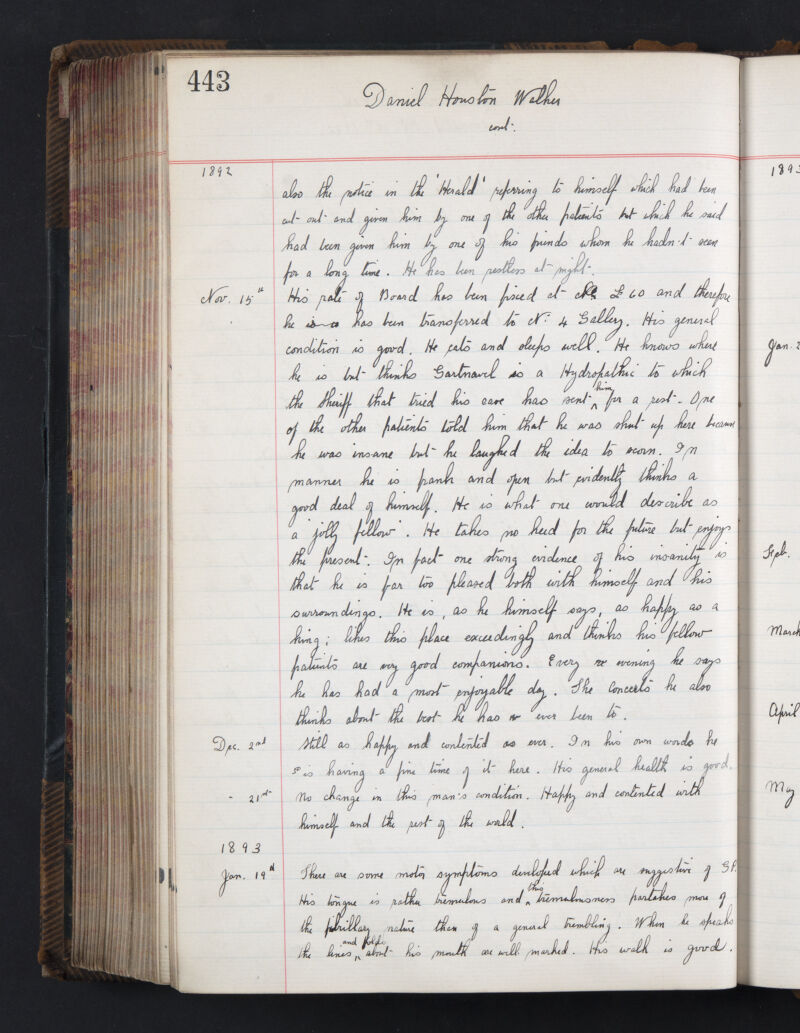 443
Daniel Houston Walker
cont.
1892
also the notice in the 'Herald' referring to himself which had been
cut out and given him by one of the other patients but which he said
had been given him by one of his friends whom he hadn't seen
for a long time. He has been restless at night.
Nov. 15th His rate of Board has been fixed at £60 and therefore
he is has been transferred to No. 4 Gallery. His general
condition is good. He eats and sleeps well. He knows where
he is but thinks Gartnavel is a Hydropathic to which
the Sheriff that tried his case has sent him for a rest. One
of the other patients told him that he was shut up here because
he was insane but he laughed the idea to scorn. In
manner he is frank and open but evidently thinks a
good deal of himself. He is what one would describe as
a 'jolly fellow'. He takes no heed for the future but enjoys
the present. In fact one strong evidence of his insanity is
that he is far too pleased both with himself and his
surroundings. He is, as he himself says, as happy as a
king; likes this place exceedingly and thinks his fellow
patients are very good companions. Every evening he says
he has had a most enjoyable day. The concerts he also
thinks about the best he has ever been to.
Dec. 2nd Still as happy and contented as ever. In his own words he
is having a fine time of it here. His general health is good.
- 21st No change in this man's condition. Happy and contented with
himself and the rest of the world.
1893
Jan. 19th There are some motor symptoms developed which are suggestive of G.P.
His tongue is rather tremulous and this tremulousness partakes more of
the fibrillary nature than of a general trembling. When he speaks
the lines and folds about his mouth are well marked. His walk is good.
189
Jan. 2
Feb.
March
April
May